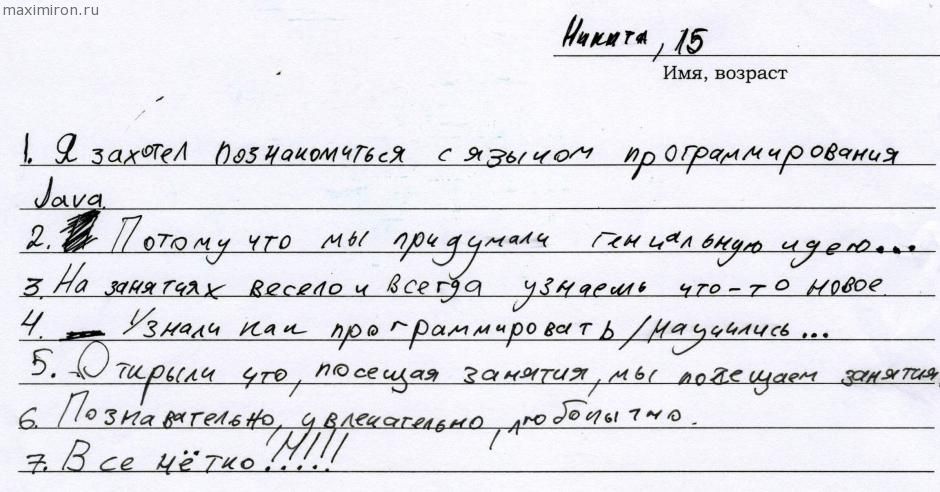 maximiron.ru
Никита, 15
Имя, возраст
1. Я захотел познакомиться с языком программирования
Java.
2. Потому что мы придумали гениальную идею...
3. На занятиях весело и всегда узнаешь что-то новое.
4. Узнали как программировать/научились...
5. Открыли что, посещая занятия, мы посещаем занятия.
6. Познавательно, увлекательно, любопытно.
7. Все чётко!!!!!